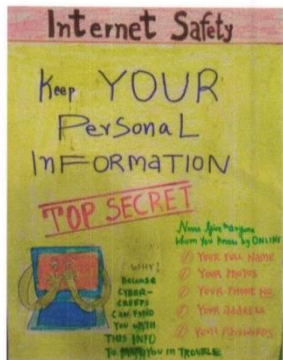 Internet Safety
Keep YOUR
PersonaL
InFORMATION
TOP SECRET
Never give anyone
whom You know by ONLINE
YOUR FULL NAME
YOUR PHOTOS
YOUR PHONE NO.
YOUR ADDRESS
YOUR PASSWORDS
WHY?
BECAUSE
CYBER-
CREEPS
CAN FIND
YOU WITH
THIS INFO
TO YOU IN TROUBLE